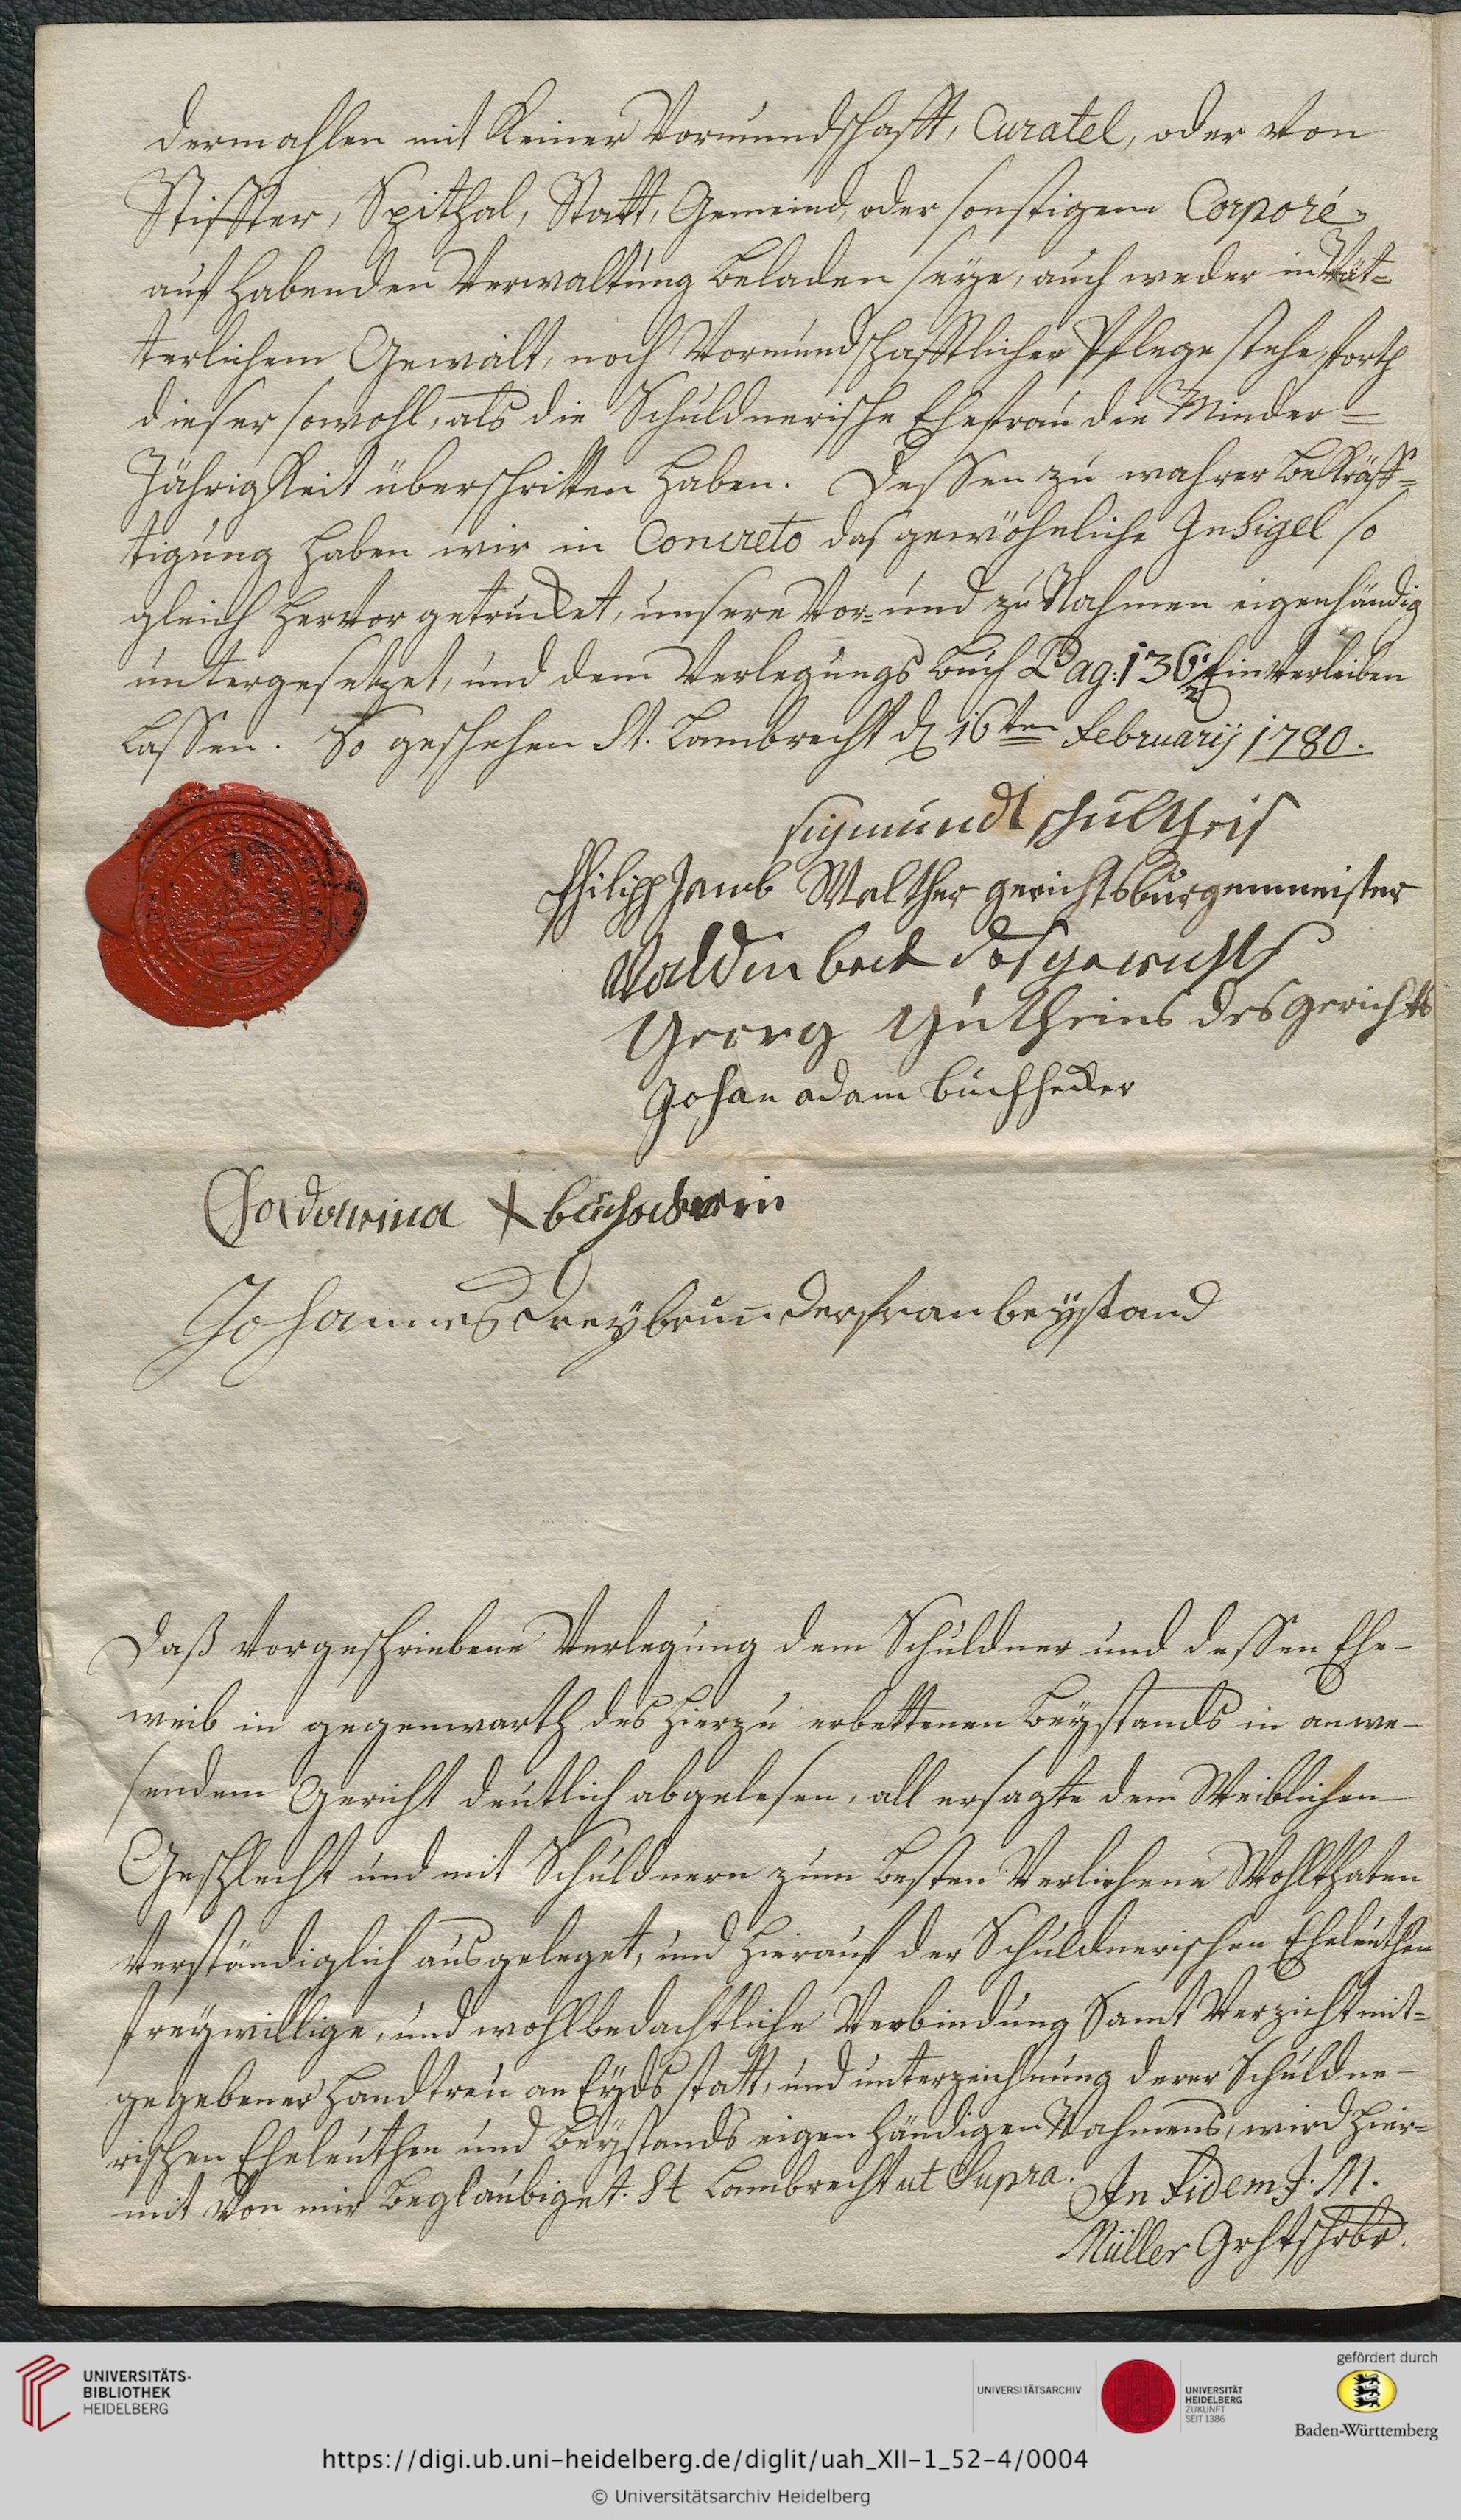 dermahlen mit Keiner Vormundschafft, Curatel, oder von
Stiffter, Spithal, Statt, Gemeind, oder sonstigem Corpore
auf habenden Verwaltung beladen seye, auch weder in Vät=
terlichem Gewalt, noch Vormundschafftlicher Pflege stehe, forth
dieser sowohl, als die Schuldnerische Ehefrau die Minder=
Jährigkeit überschritten haben. Dessen zu wahrer bekräff=
tigung haben wir in Concreto das gewöhnliche Insigel so
gleich hervor getrucket, unsere Vor= und zu Nahmen eigenhändig
untergesetzet, und dem Verlegungs buch Pag: 136 Einverleiben
lassen. So geschehen St. Lambrecht d 16ten Februarij 1780.
sigmundt schultheis
Philipp Jacob Walther gerichtsburgemeister
Valdin beck des gerichts
Georg Gutheins des gerichts
Johan adam buchhecker
+
Johannes Dreybrun der frau beystand
Daß vorgeschriebene Verlegung dem Schuldner und dessen Ehe-
weib in gegenwarth des hierzu erbettenen beystands in anwe-
sendem Gericht deutlich abgelesen, all ersagte dem Weiblichen
Geschlecht und mit Schuldnern zum besten Verliehene Wohlthaten
Verständiglich ausgeleget, und hierauf der Schuldnerischen Eheleuthen
freywillige, und wohlbedachtliche Verbindung Samt Verzicht mit=
gegebener handtreu an Eyds statt, und unterzeichnung derer Schuldne-
rischen Eheleuthen und beystands eigen händigen Nahmens, wird hier=
mit Von mir beglaubiget. St Lambrecht ut Supra. In Fidem J. M.
Müller Grhtschrbr.
UNIVERSITÄTS-
BIBLIOTHEK
HEIDELBERG
UNIVERSITÄTSARCHIV
UNIVERSITÄT
HEIDELBERG
ZUKUNFT
SEIT 1386
gefördert durch
Baden-Württemberg
https://digi.ub.uni-heidelberg.de/diglit/uah_XII-1_52-4/0004
© Universitätsarchiv Heidelberg